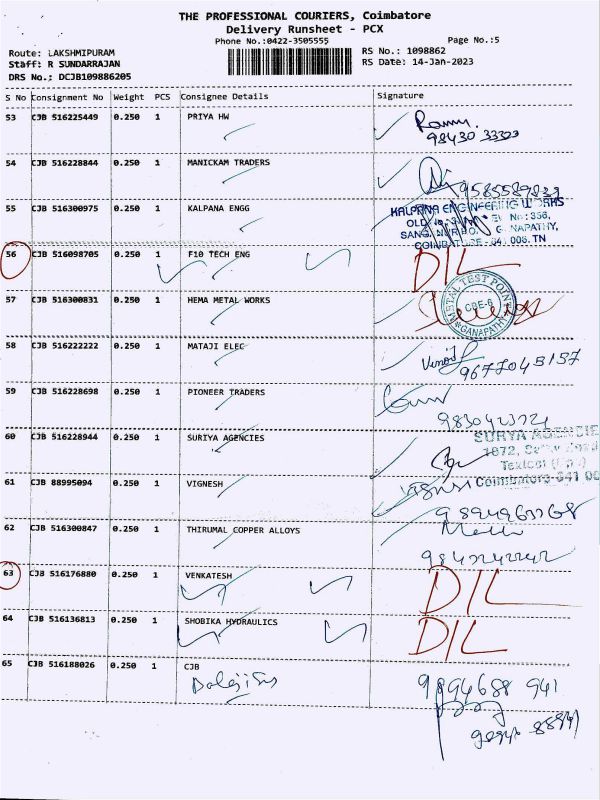 THE PROFESSIONAL COURIERS, Coimbatore
Delivery Runsheet - PCX
Phone No.:0422-3505555 Page No.:5
Route: LAKSHMIPURAM RS No.: 1098862
Staff: R SUNDARRAJAN RS Date: 14-Jan-2023
DRS No.: DCJB109886205
S No Consignment No Weight PCS Consignee Details Signature
53 CJB 516225449 0.250 1 PRIYA HW
98430 33303
54 CJB 516228844 0.250 1 MANICKAM TRADERS
9585589839
55 CJB 516300975 0.250 1 KALPANA ENGG KALPANA ENGINEERING WORKS
GANAPATHY,
COIMBATORE - 641 006. TN
56 CJB 516098705 0.250 1 F10 TECH ENG D/L
57 CJB 516300831 0.250 1 HEMA METAL WORKS METAL TEST POINT
CBE-6
GANAPATHY
58 CJB 516222222 0.250 1 MATAJI ELEC Vinoth
9677045157
59 CJB 516228698 0.250 1 PIONEER TRADERS
60 CJB 516228944 0.250 1 SURIYA AGENCIES SURYA AGENCIE
1072,
Coimbatore-641 00
61 CJB 88995094 0.250 1 VIGNESH
62 CJB 516300847 0.250 1 THIRUMAL COPPER ALLOYS
63 CJB 516176880 0.250 1 VENKATESH D/L
64 CJB 516136813 0.250 1 SHOBIKA HYDRAULICS D/L
65 CJB 516188026 0.250 1 CJB
9894688 941